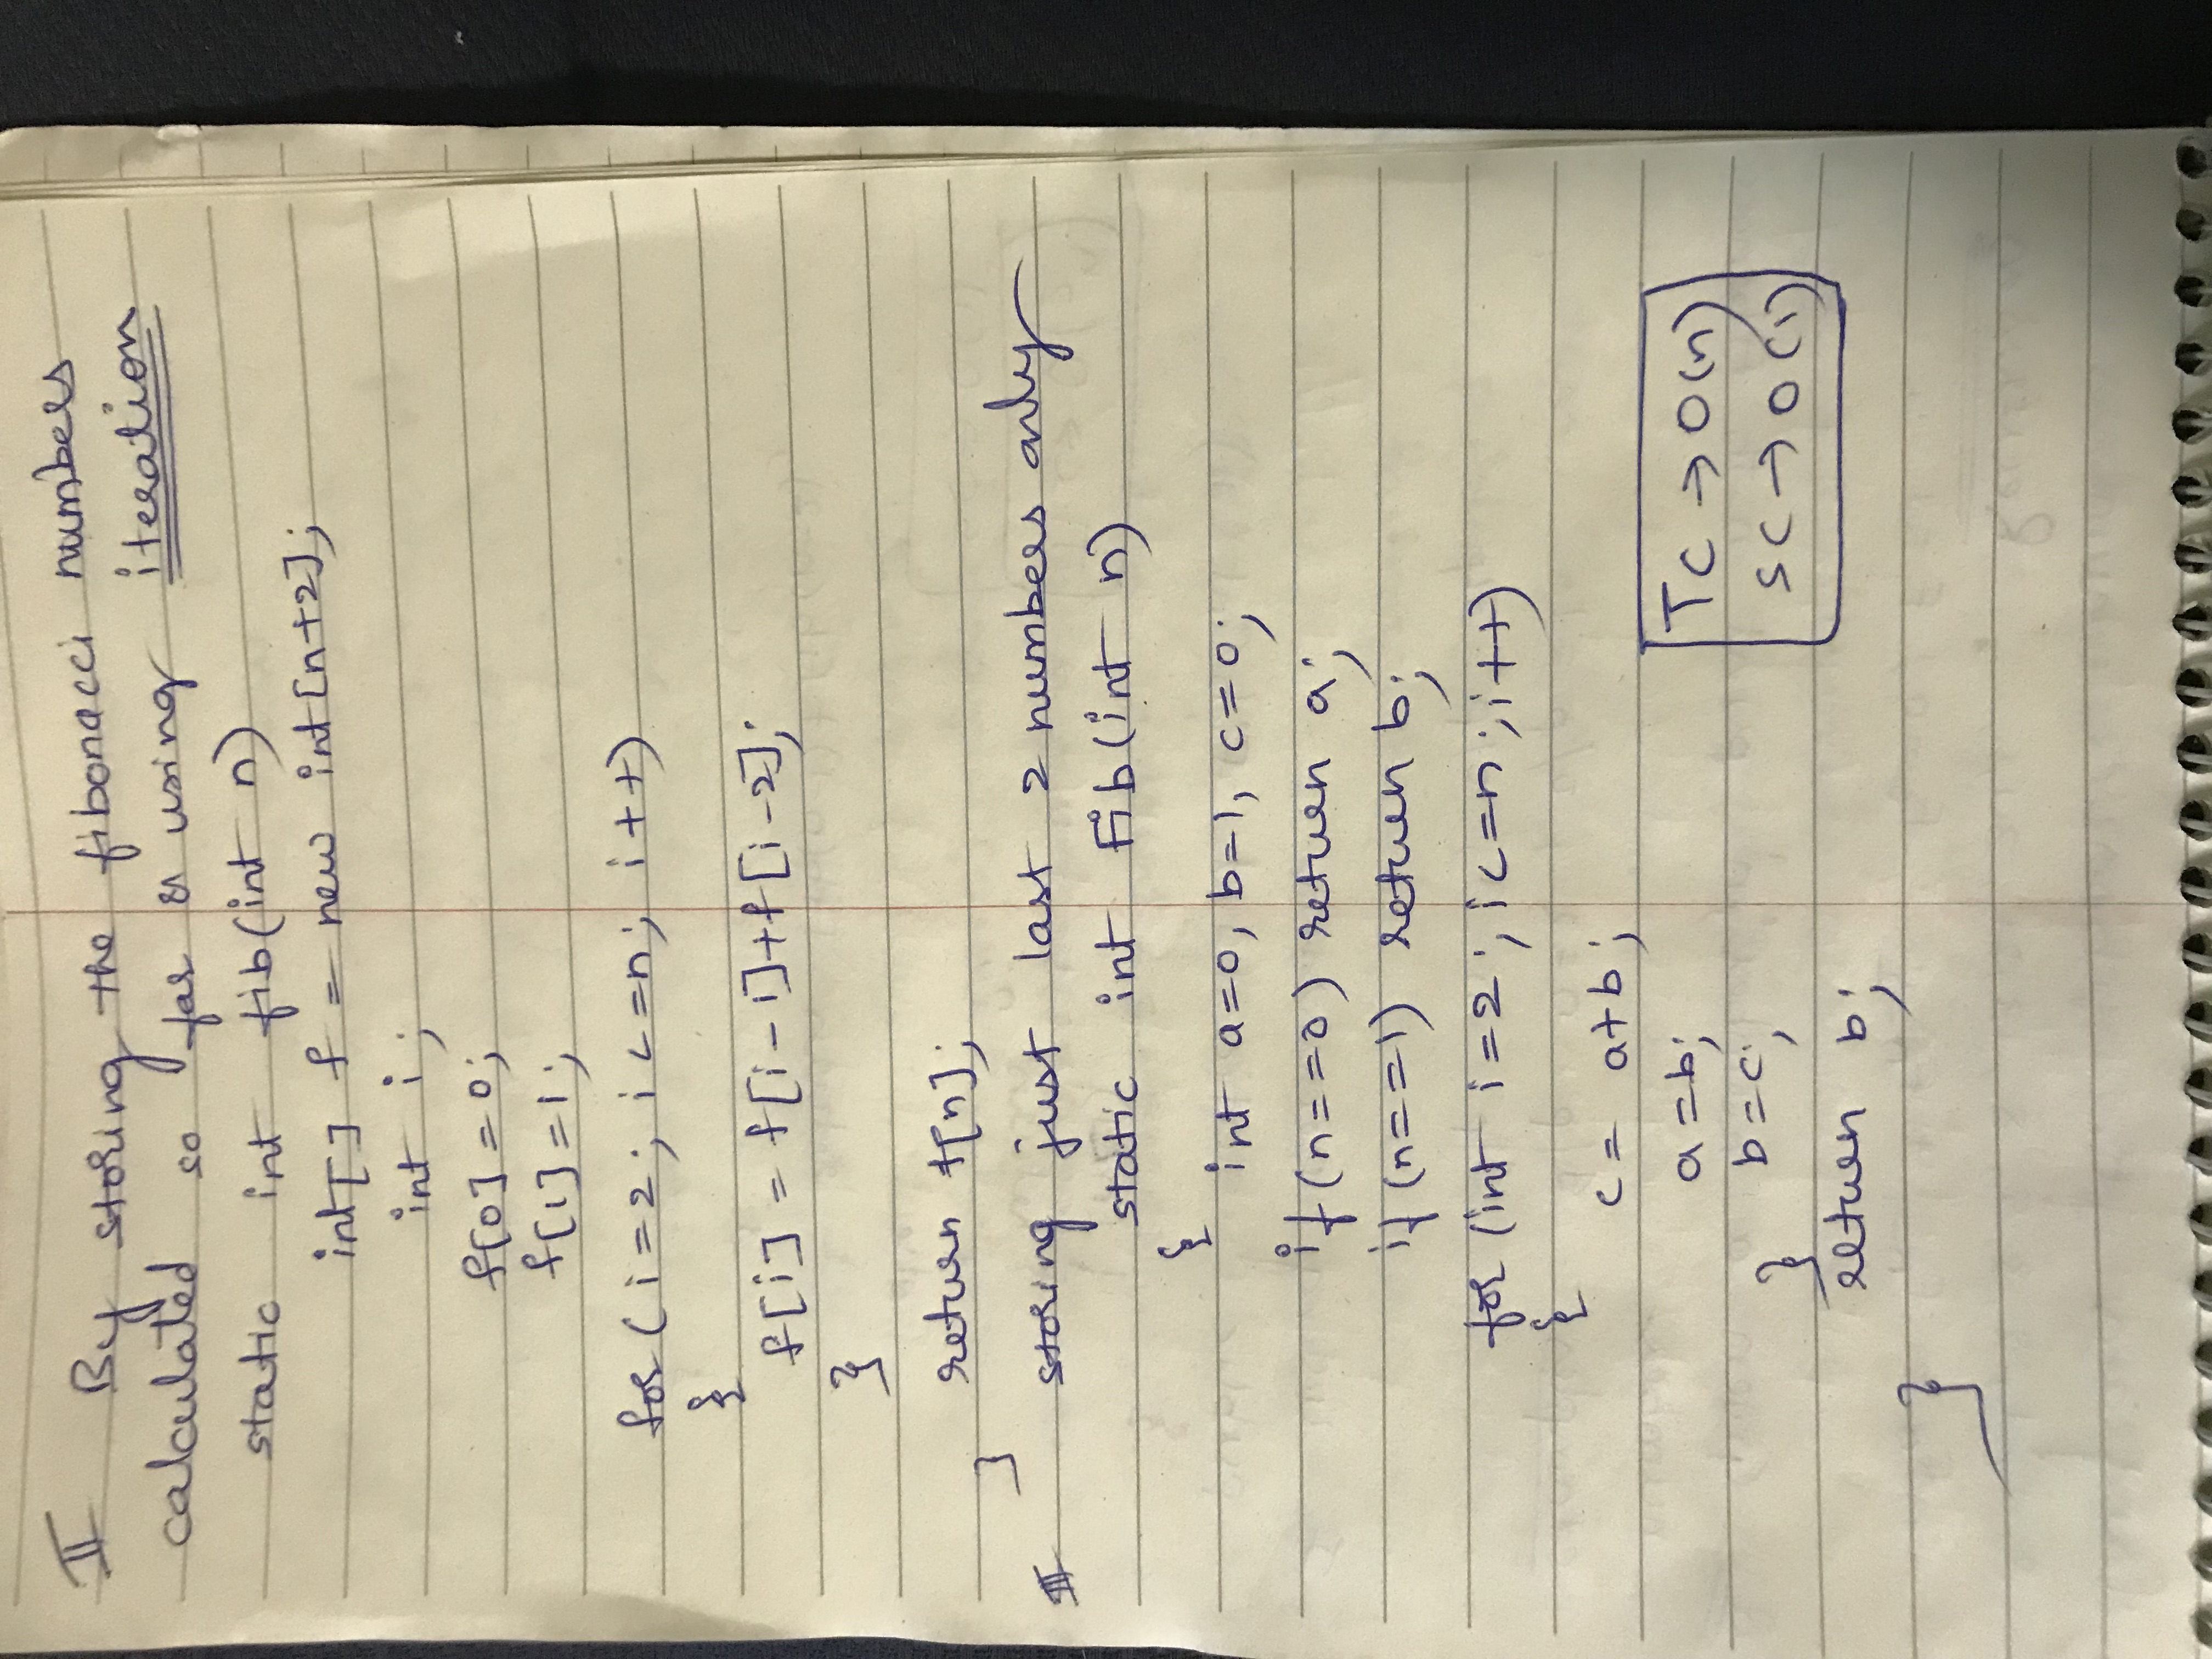 II By storing the fibonacci numbers
calculated so far & using iteration
static int fib(int n)
int[] f = new int[n+2];
int i;
f[0]=0;
f[1]=1;
for(i=2; i<=n; i++)
{
f[i] = f[i-1]+f[i-2];
}
return f[n];
}
III storing just last 2 numbers only
static int Fib(int n)
{
int a=0, b=1, c=0;
if(n==0) return a;
if(n==1) return b;
for (int i=2; i<=n; i++)
{
c= a+b;
a=b;
b=c;
}
return b;
}
TC → O(n)
SC → O(1)